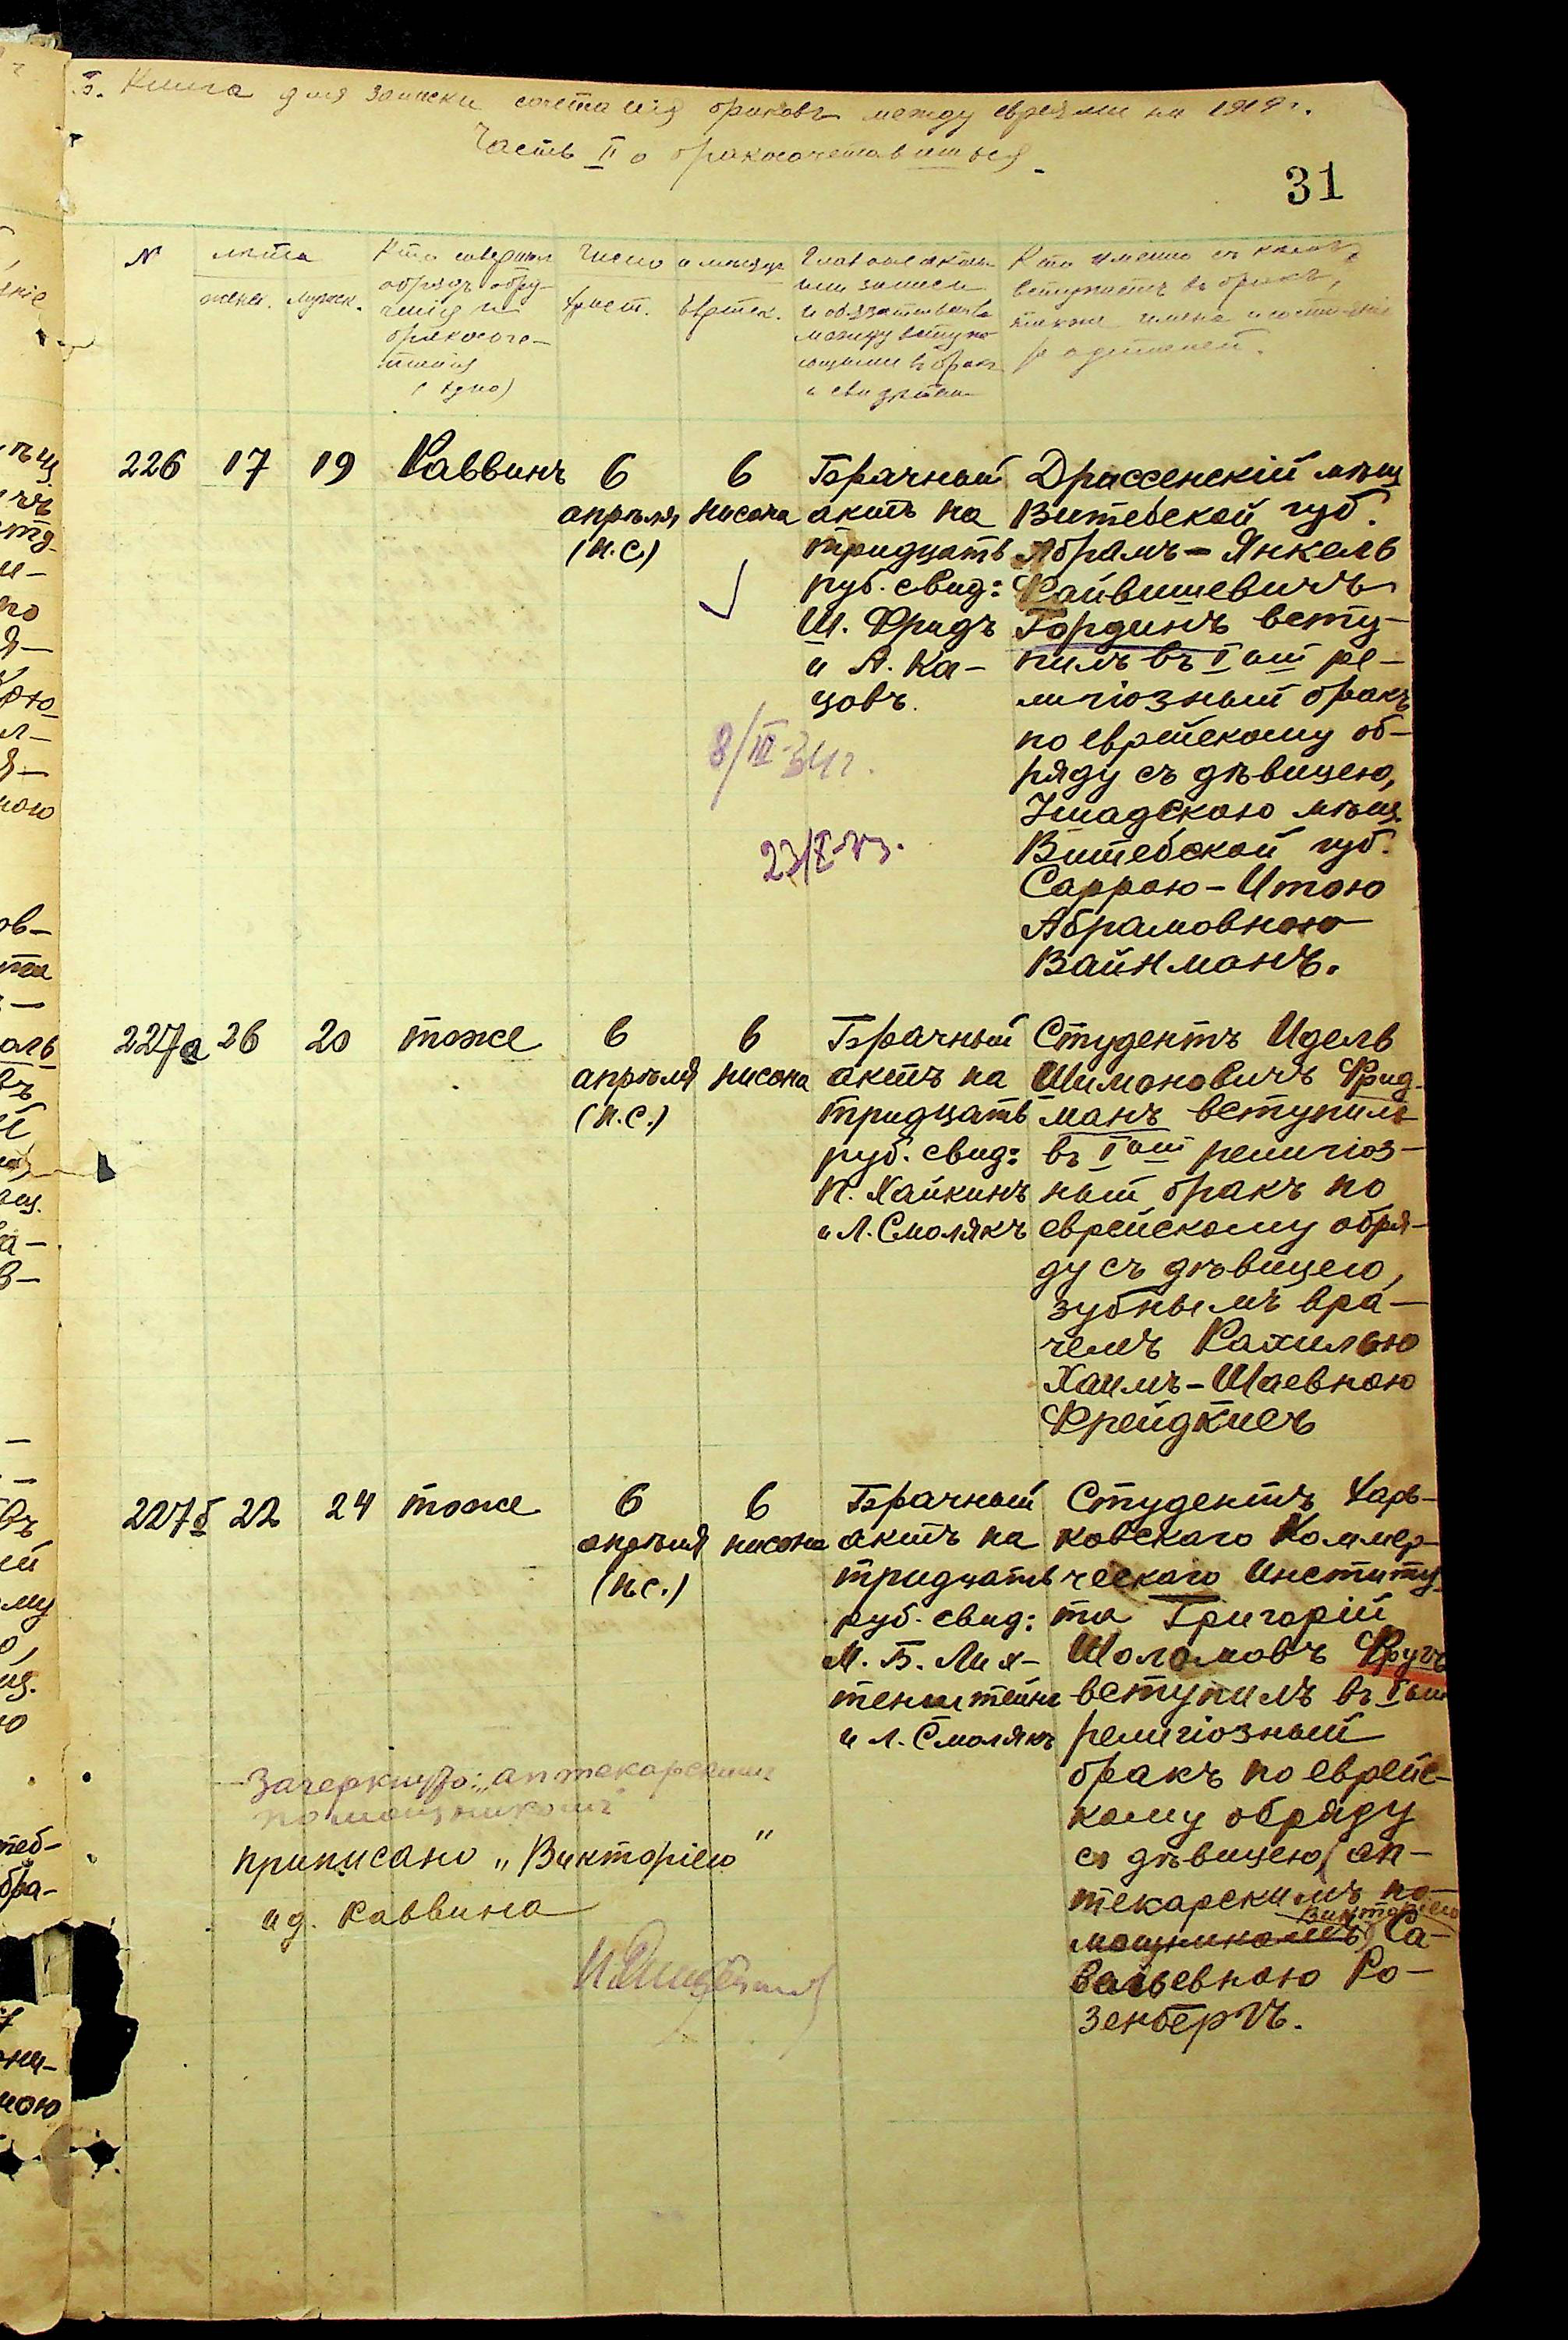 Книга для записи сочетанія браковъ между евреями на 1919 г.
Часть II о бракосочетавшихся
31
№
лѣта
женск. мужск.
Кто совершал
обрядъ обру-
ченія и
бракосоче-
танія
Число и мѣсяцъ
христ. Еврейск.
Главные акты
или записи
и обязательства
между вступа-
ющими в бракъ
и свидѣтели
Кто именно съ кѣмъ
вступаетъ въ бракъ,
также имена и состояніе
родителей.
226 17 19 Раввинъ
6
апрѣля
(н.с.)
6
нисона
Брачный
актъ на
тридцать
руб. свид:
Ш. Фридъ
и А. Ка-
цовъ.
Дриссенскій мѣщ.
Витебской губ.
Абрамъ-Янкель
Райвишевичъ
Гординъ всту-
пилъ въ Iый ре-
лигіозный бракъ
по еврейскому об-
ряду съ дѣвицею,
Ушадскою мѣщ.
Витебской губ.
Саррою-Итою
Абрамовною
Вайнманъ.
8/III-34г.
23/X-43.
227а 26 20 тоже
6
апрѣля
(н.с.)
6
нисона
Брачный
актъ на
тридцать
руб. свид:
П. Хайкинъ
и Л. Смолякъ
Студентъ Идель
Шимоновичъ Фрид-
манъ вступилъ
въ Iый религіоз-
ный бракъ по
еврейскому обря-
ду съ дѣвицею,
зубнымъ вра-
чемъ Рахилью
Хаимъ-Шаевною
Фрейдкисъ
227б 22 24 тоже
6
апрѣля
(н.с.)
6
нисона
Брачный
актъ на
тридцать
руб. свид:
М. Б. Лих-
тенштейнъ
и Л. Смолякъ
Студентъ Харь-
ковскаго Коммер-
ческаго Институ-
та Григорій
Шоломовъ Фругъ
вступилъ въ Iый
религіозный
бракъ по еврейс-
кому обряду
съ дѣвицею (ап-
текарскимъ по-
Викторіею
мощникомъ) Са-
вельевною Ро-
зенбергъ.
Зачеркнуто: "аптекарскимъ
помощникомъ"
приписано "Викторіею"
ид. Раввина